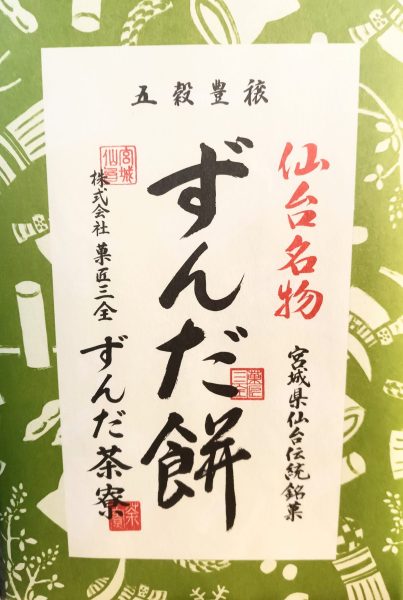 五穀豊穣
仙台名物
宮城県仙台伝統銘菓
ずんだ餅
菓匠三全
株式会社 菓匠三全
ずんだ茶寮